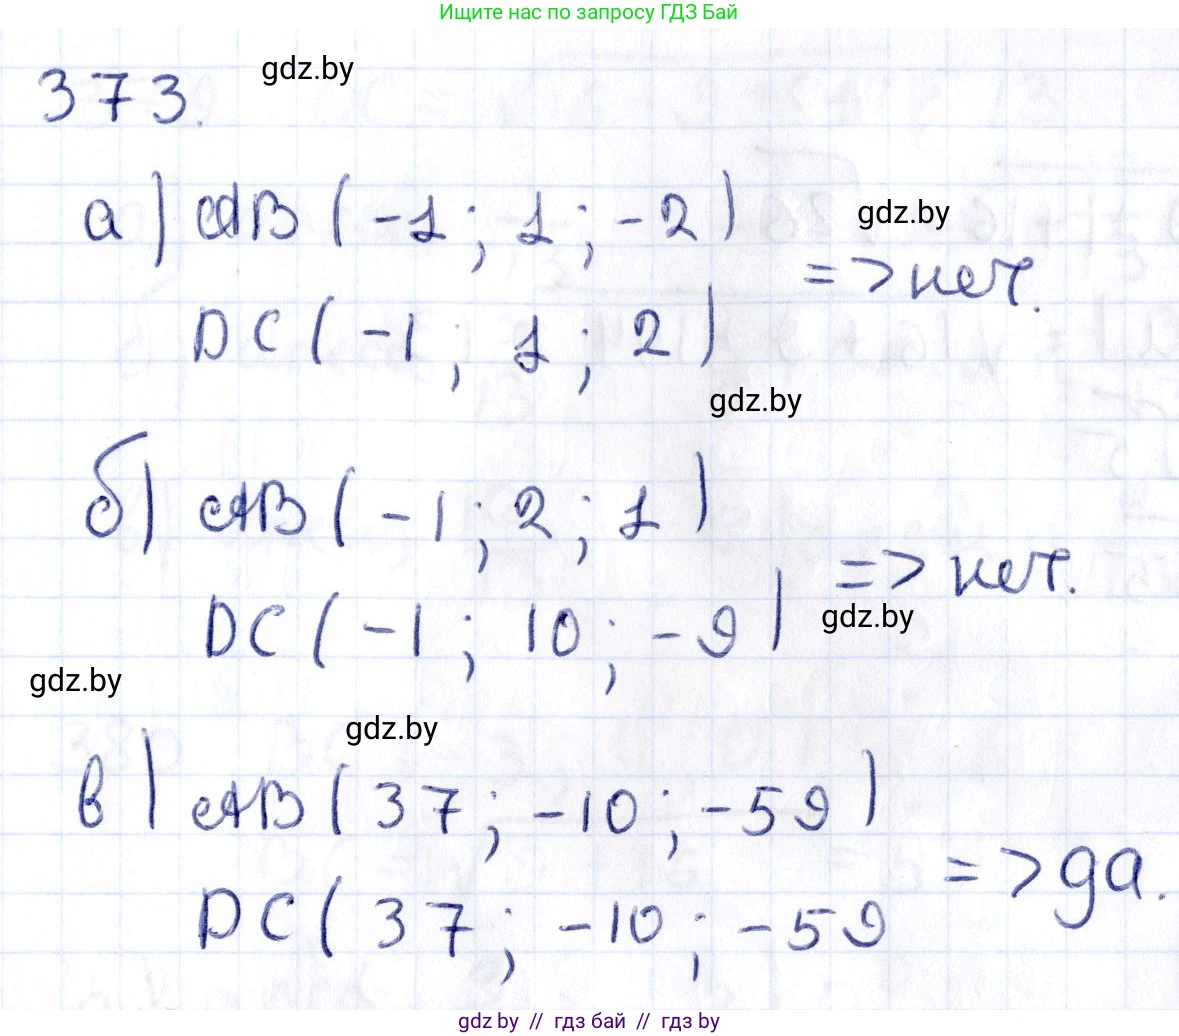 Ищите нас по запросу ГДЗ Бай
373. gdz.by
а) AB (-1; 1; -2) gdz.by
=> нет.
DC (-1; 1; 2)
gdz.by
б) AB (-1; 2; 1)
=> нет.
DC (-1; 10; -9) gdz.by
gdz.by
gdz.by
в) AB (37; -10; -59)
=> да.
DC (37; -10; -59
gdz.by // гдз бай // гдз by